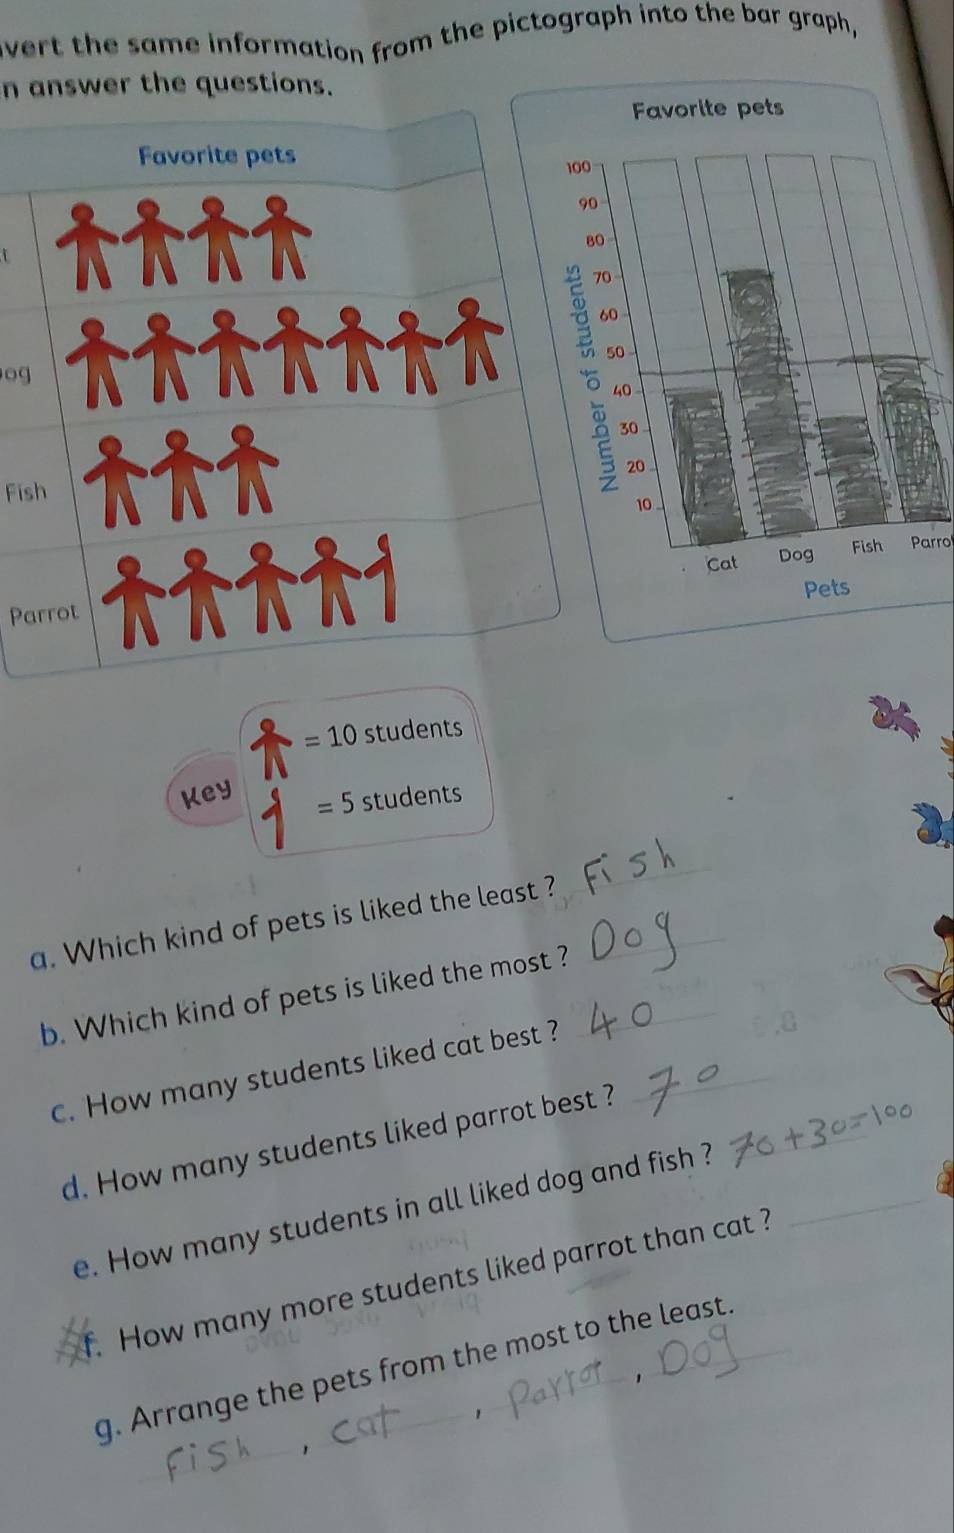 vert the same information from the pictograph into the bar graph,
n answer the questions.
Favorite pets
t
og
Fish
Parrot
Favorite pets
100
90
80
70
60
50
40
30
20
10
Number of students
Cat Dog Fish Parro
Pets
Key
= 10 students
= 5 students
a. Which kind of pets is liked the least ? Fish
b. Which kind of pets is liked the most ? Dog
c. How many students liked cat best ? 40
d. How many students liked parrot best ? 70
e. How many students in all liked dog and fish ? 70+30=100
f. How many more students liked parrot than cat ?
g. Arrange the pets from the most to the least.
Fish , cat , Parrot , Dog